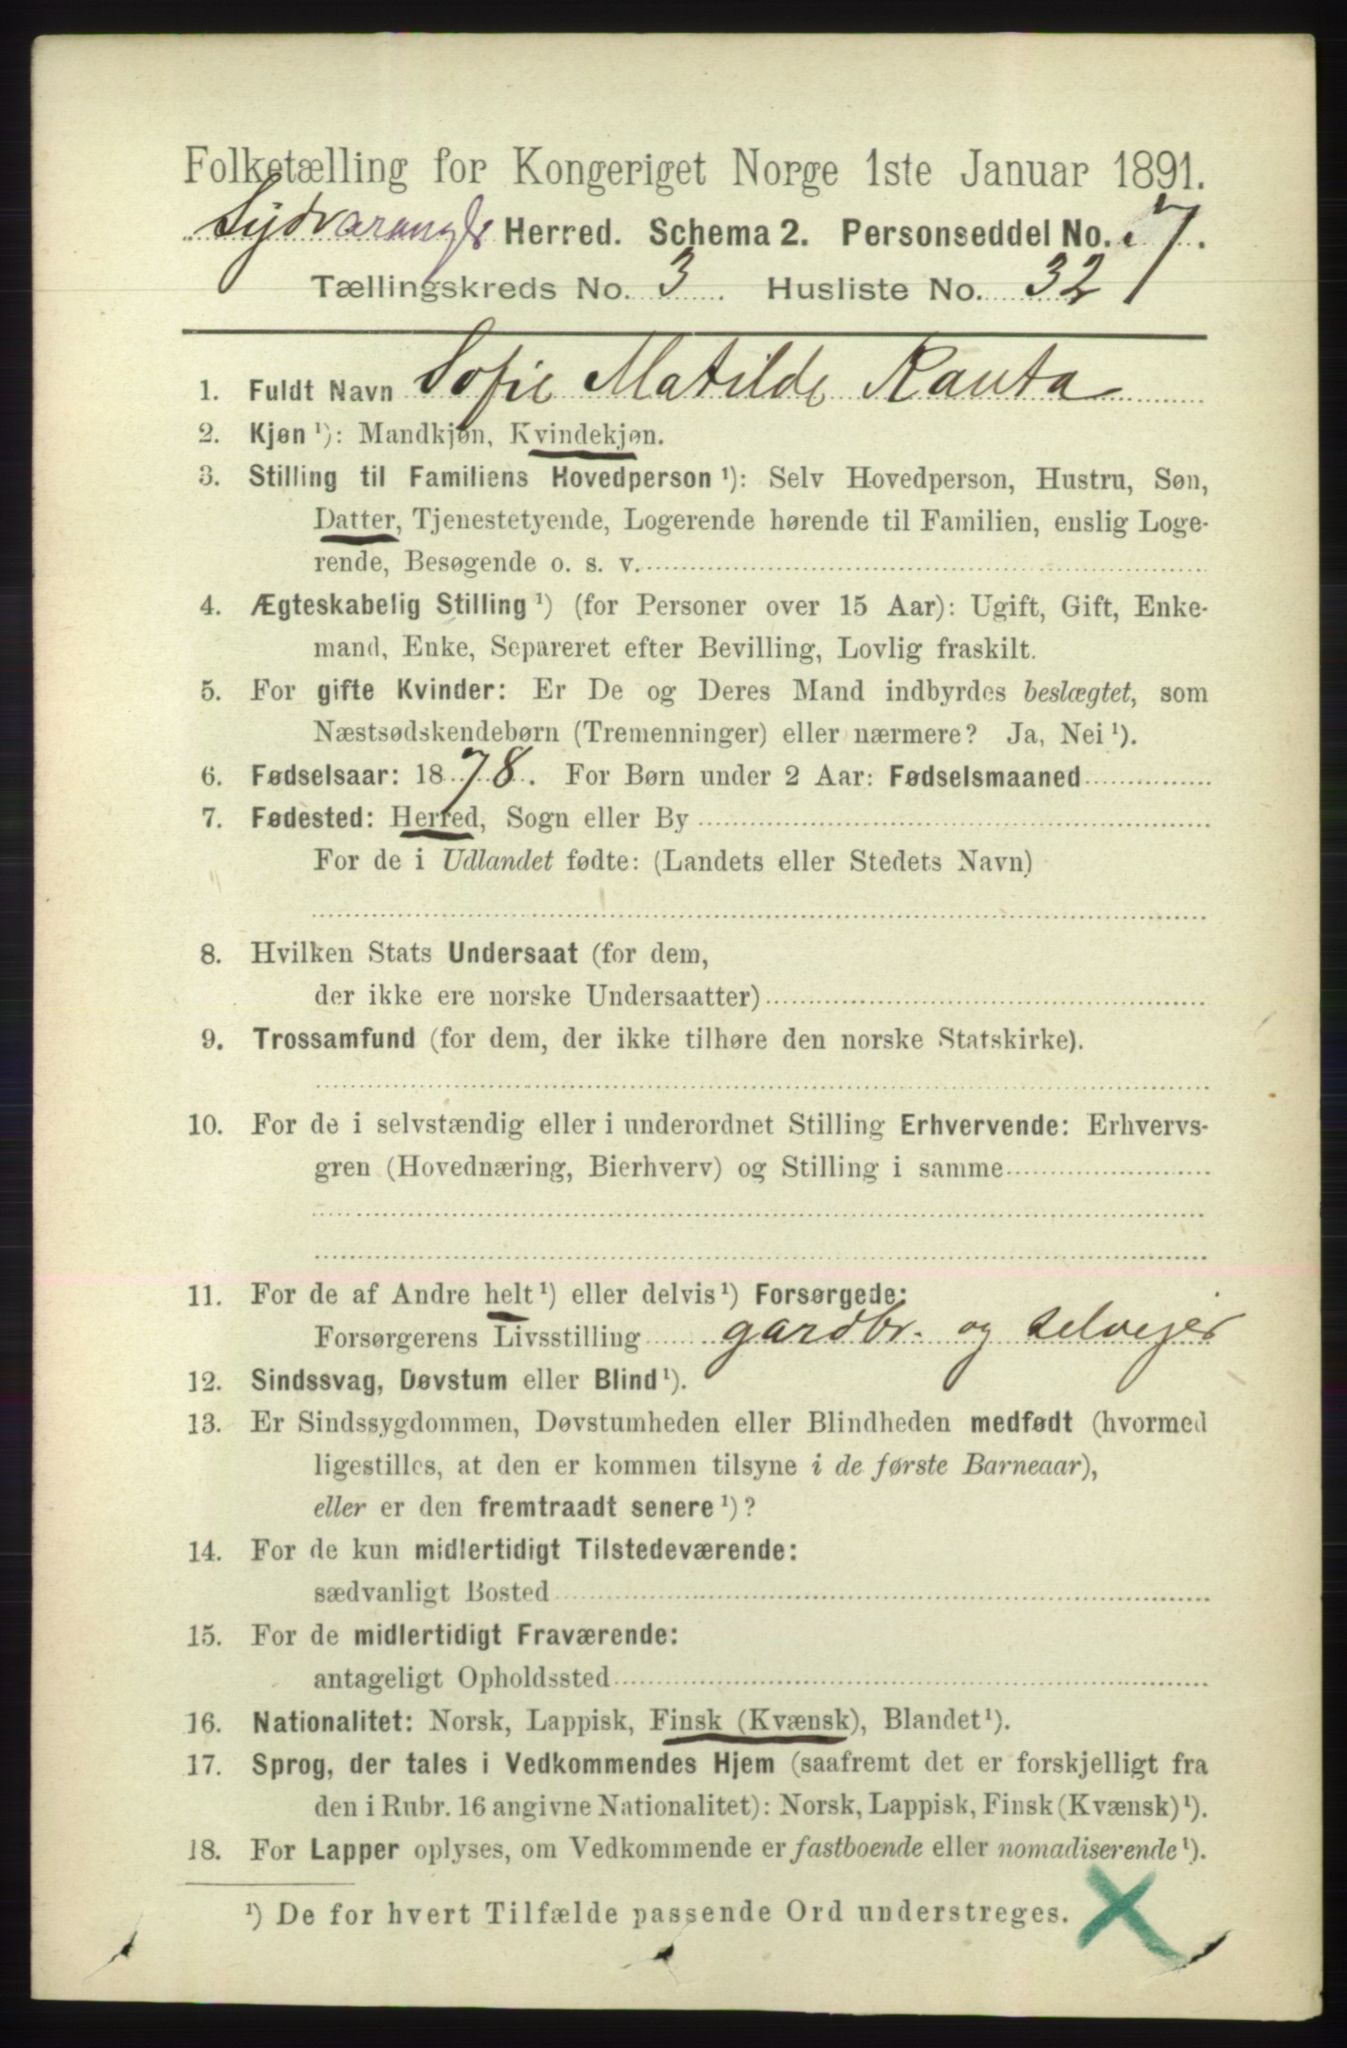 Folketælling for Kongeriget Norge 1ste Januar 1891.
Sydvaranger Herred. Schema 2. Personseddel No. 7.
Tællingskreds No. 3 Husliste No. 32
1. Fuldt Navn Sofie Matilde Rauta
2. Kjøn ¹): Mandkjøn, Kvindekjøn.
3. Stilling til Familiens Hovedperson ¹): Selv Hovedperson, Hustru, Søn,
Datter, Tjenestetyende, Logerende hørende til Familien, enslig Loge-
rende, Besøgende o. s. v.
4. Ægteskabelig Stilling ¹) (for Personer over 15 Aar): Ugift, Gift, Enke-
mand, Enke, Separeret efter Bevilling, Lovlig fraskilt.
5. For gifte Kvinder: Er De og Deres Mand indbyrdes beslægtet, som
Næstsødskendebørn (Tremenninger) eller nærmere? Ja, Nei ¹).
6. Fødselsaar: 1878. For Børn under 2 Aar: Fødselsmaaned
7. Fødested: Herred, Sogn eller By
For de i Udlandet fødte: (Landets eller Stedets Navn)
8. Hvilken Stats Undersaat (for dem,
der ikke ere norske Undersaatter)
9. Trossamfund (for dem, der ikke tilhøre den norske Statskirke).
10. For de i selvstændig eller i underordnet Stilling Erhvervende: Erhvervs-
gren (Hovednæring, Bierhverv) og Stilling i samme
11. For de af Andre helt ¹) eller delvis ¹) Forsørgede:
Forsørgerens Livsstilling gardbr. og selvejer
12. Sindssvag, Døvstum eller Blind ¹).
13. Er Sindssygdommen, Døvstumheden eller Blindheden medfødt (hvormed
ligestilles, at den er kommen tilsyne i de første Barneaar),
eller er den fremtraadt senere ¹)?
14. For de kun midlertidigt Tilstedeværende:
sædvanligt Bosted
15. For de midlertidigt Fraværende:
antageligt Opholdssted
16. Nationalitet: Norsk, Lappisk, Finsk (Kvænsk), Blandet ¹).
17. Sprog, der tales i Vedkommendes Hjem (saafremt det er forskjelligt fra
den i Rubr. 16 angivne Nationalitet): Norsk, Lappisk, Finsk (Kvænsk) ¹).
18. For Lapper oplyses, om Vedkommende er fastboende eller nomadiserende ¹).
¹) De for hvert Tilfælde passende Ord understreges.